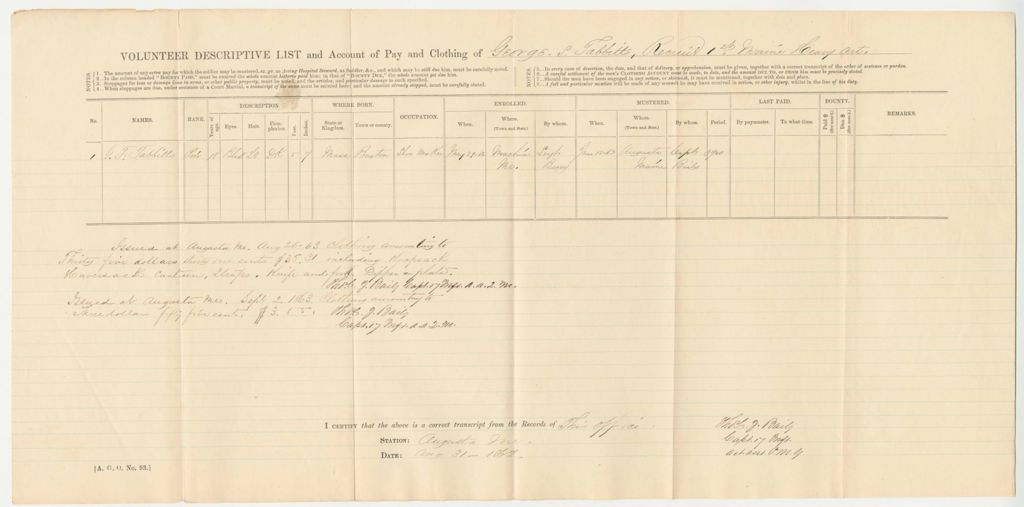 VOLUNTEER DESCRIPTIVE LIST and Account of Pay and Clothing of George S Tabbitts, Recruit 1st Maine Heavy Art.
NOTES.
1. The amount of any extra pay for which the soldier may be mustered, as Acting Hospital Steward, as Saddler &c., and which may be still due him, must be carefully noted.
2. In the column headed "BOUNTY PAID," must be entered the whole amount hitherto paid him; in that of "BOUNTY DUE," the whole amount yet due him.
3. Stoppages for loss or damage done to arms, or other public property, must be noted, and the articles, and particular damage to each specified.
4. When stoppages are due, under sentence of a Court Martial, a transcript of the same must be entered here; and the amount already stopped, must be carefully stated.
NOTES.
5. In every case of desertion, the date, and that of delivery, or apprehension, must be given, together with a correct transcript of the order of sentence or pardon.
6. A careful settlement of the man's CLOTHING ACCOUNT must be made, to date, and the amount DUE TO, or FROM him must be precisely stated.
7. Should the man have been engaged in any action, or skirmish, it must be mentioned, together with date and place.
8. A full and particular mention will be made of any wound he may have received in action, or other injury, whilst in the line of his duty.
No. NAMES. RANK. Years of age. DESCRIPTION. WHERE BORN. OCCUPATION. ENROLLED. MUSTERED. LAST PAID. BOUNTY. REMARKS.
Eyes. Hair. Complexion. Feet. Inches. State or Kingdom. Town or county. When. Where. (Town and State.) By whom. When. Where. (Town and State.) By whom. Period. By paymaster. To what time. Paid $ Due $
1 Tabbitts 18 5 7 Mass Boston Shoe Maker Machias Augusta Capt
Me. Maine Baily
Issued at Augusta Me. Aug 26 63 Clothing amounting to
Thirty five dollars thirty one cents $35.31 including Knapsack
Haversack canteen, Straps. Knife and fork Dipper & plate.
Thos. J. Baily Capt. 17 Inf. A. A. Q. M.
Issued at Augusta Me. Sept. 2. 1863 Clothing amounting to
Three dollars fifty five cents. $3.55. Thos. J. Baily
Capt. 17 Inf. A A Q. M.
I CERTIFY that the above is a correct transcript from the Records of This Office.
STATION: Augusta Me.
DATE: Aug 31
Thos. J. Baily
Capt. 17 Inf.
[A. G. O. No. 93.]